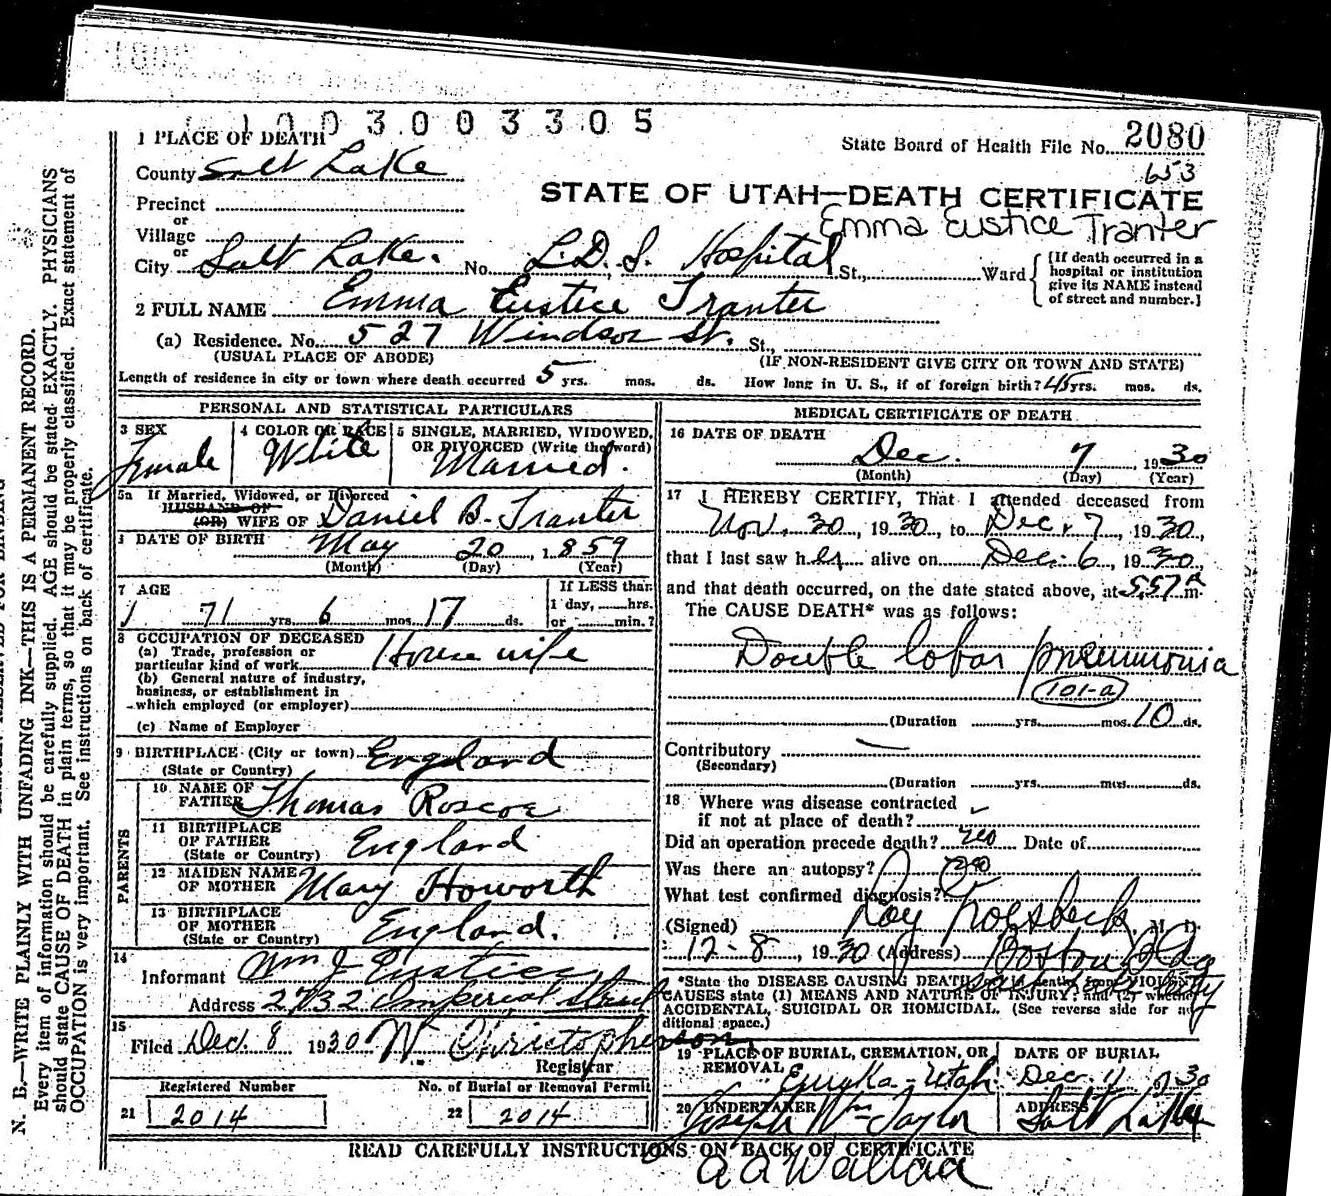 1003003305
1 PLACE OF DEATH
State Board of Health File No. 2080
653
County Salt Lake
STATE OF UTAH—DEATH CERTIFICATE
Precinct
Emma Eustice Tranter
or
Village
or
City Salt Lake. No. L.D.S. Hospital St., Ward
[If death occurred in a hospital or institution give its NAME instead of street and number.]
2 FULL NAME Emma Eustice Tranter
(a) Residence. No. 527 Windsor St. St.,
(USUAL PLACE OF ABODE) (IF NON-RESIDENT GIVE CITY OR TOWN AND STATE)
Length of residence in city or town where death occurred 5 yrs. mos. ds. How long in U. S., if of foreign birth? 45 yrs. mos. ds.
PERSONAL AND STATISTICAL PARTICULARS
3 SEX Female
4 COLOR OR RACE White
5 SINGLE, MARRIED, WIDOWED, OR DIVORCED (Write the word) Married.
5a If Married, Widowed, or Divorced
HUSBAND OF
(OR) WIFE OF Daniel B. Tranter
DATE OF BIRTH May 20, 1859
(Month) (Day) (Year)
7 AGE
71 yrs. 6 mos. 17 ds.
If LESS than
1 day, hrs.
or min.?
8 OCCUPATION OF DECEASED
(a) Trade, profession or
particular kind of work Housewife
(b) General nature of industry,
business, or establishment in
which employed (or employer)
(c) Name of Employer
9 BIRTHPLACE (City or town) England
(State or Country)
PARENTS
10 NAME OF FATHER Thomas Roscoe
11 BIRTHPLACE OF FATHER England
(State or Country)
12 MAIDEN NAME OF MOTHER Mary Howorth
13 BIRTHPLACE OF MOTHER England.
(State or Country)
14
Informant Wm J Eustice
Address 2732 Imperial Street
15
Filed Dec. 8 1930 W. Christopherson
Registrar
Registered Number No. of Burial or Removal Permit
21 2014 22 2014
MEDICAL CERTIFICATE OF DEATH
16 DATE OF DEATH
Dec. 7, 1930
(Month) (Day) (Year)
17 I HEREBY CERTIFY, That I attended deceased from
Nov. 30, 1930, to Dec. 7, 1930,
that I last saw her alive on Dec. 6, 1930,
and that death occurred, on the date stated above, at 5,57 a m.
The CAUSE DEATH* was as follows:
Double lobar pneumonia
101-a
(Duration yrs. mos. 10 ds.
Contributory
(Secondary)
(Duration yrs. mos. ds.
18 Where was disease contracted
if not at place of death?
Did an operation precede death? no Date of
Was there an autopsy? no
What test confirmed diagnosis?
(Signed) Roy Groesbeck, M. D.
12-8, 1930 (Address) Boston Bldg
*State the DISEASE CAUSING DEATH,
CAUSES state (1) MEANS AND NATURE OF INJURY; and (2) whether
ACCIDENTAL, SUICIDAL OR HOMICIDAL. (See reverse side for
ditional space.)
19 PLACE OF BURIAL, CREMATION, OR REMOVAL Eureka-Utah
DATE OF BURIAL Dec. 11, 1930
20 UNDERTAKER Joseph Wm Taylor
ADDRESS Salt Lake
READ CAREFULLY INSTRUCTIONS ON BACK OF CERTIFICATE
N. B.—WRITE PLAINLY WITH UNFADING INK—THIS IS A PERMANENT RECORD.
Every item of information should be carefully supplied. AGE should be stated EXACTLY. PHYSICIANS
should state CAUSE OF DEATH in plain terms, so that it may be properly classified. Exact statement of
OCCUPATION is very important. See instructions on back of certificate.